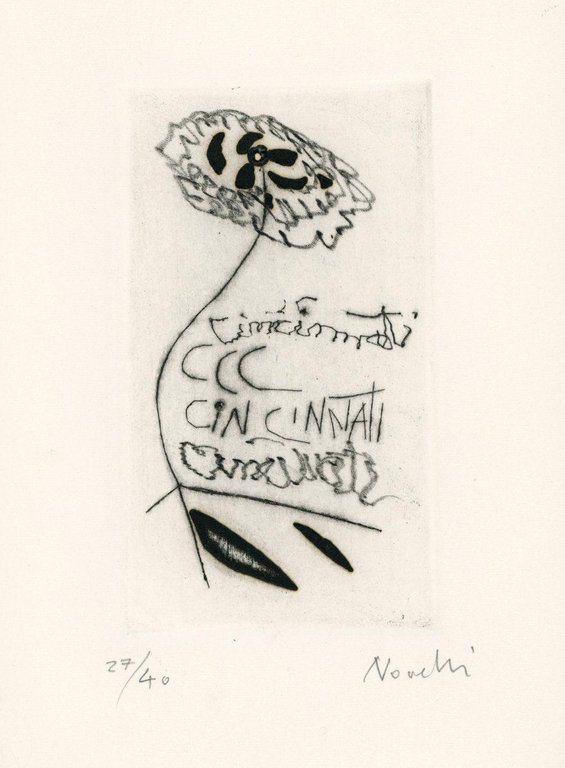 cincinnati
CCC
CiN CiNNATI
Cincinnati
27/40
Novelli